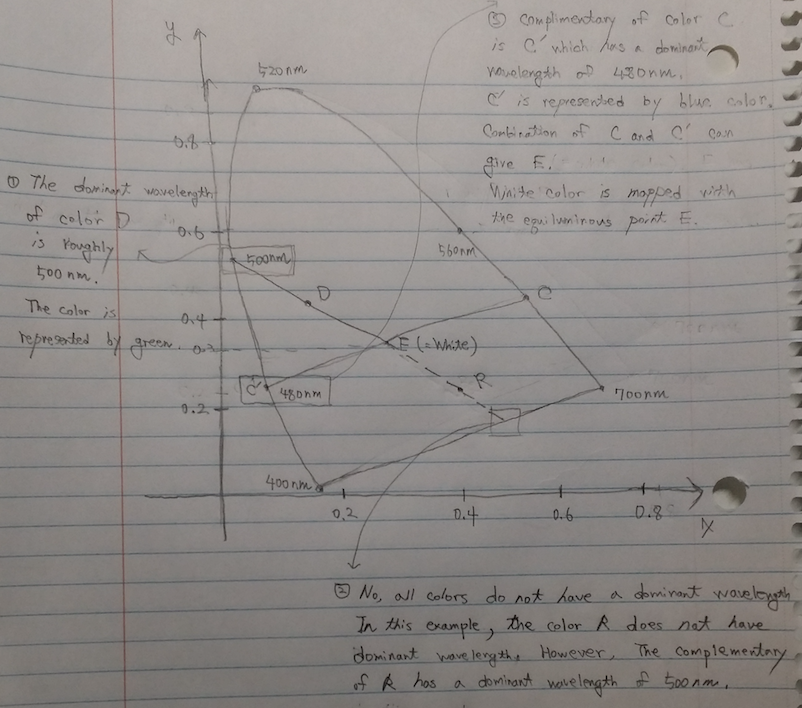 ③ complimentary of color C
is C' which has a dominant
wavelength of 480nm.
C' is represented by blue color.
Combination of C and C' can
give E.
White color is mapped with
the equiluminous point E.
① The dominant wavelength
of color D
is roughly
500 nm.
The color is
represented by green.
y
520nm
0.8
0.6
560nm
500nm
D
C
0.4
0.3
E (=White)
R
C'
480nm
700nm
0.2
400nm
0.2
0.4
0.6
0.8
X
② No, all colors do not have a dominant wavelength
In this example, the color R does not have
dominant wavelength. However, The complementary
of R has a dominant wavelength of 500nm.